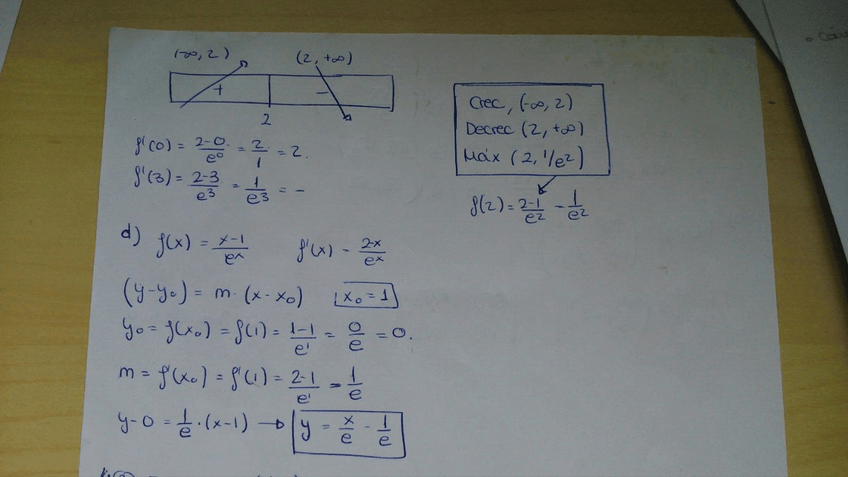 (-∞, 2) (2, +∞)
+ -
2
f'(0) = 2-0/e⁰ = 2/1 = 2.
f'(3) = 2-3/e³ = 1/e³ = -
Crec, (-∞, 2)
Decrec (2, +∞)
Máx (2, 1/e²)
f(2) = 2-1/e² - 1/e²
d) f(x) = x-1/eˣ f'(x) - 2-x/eˣ
(y-y₀) = m · (x-x₀) x₀ = 1
y₀ = f(x₀) = f(1) = 1-1/e¹ = 0/e = 0.
m = f'(x₀) = f'(1) = 2-1/e¹ = 1/e
y-0 = 1/e · (x-1) → y = x/e - 1/e